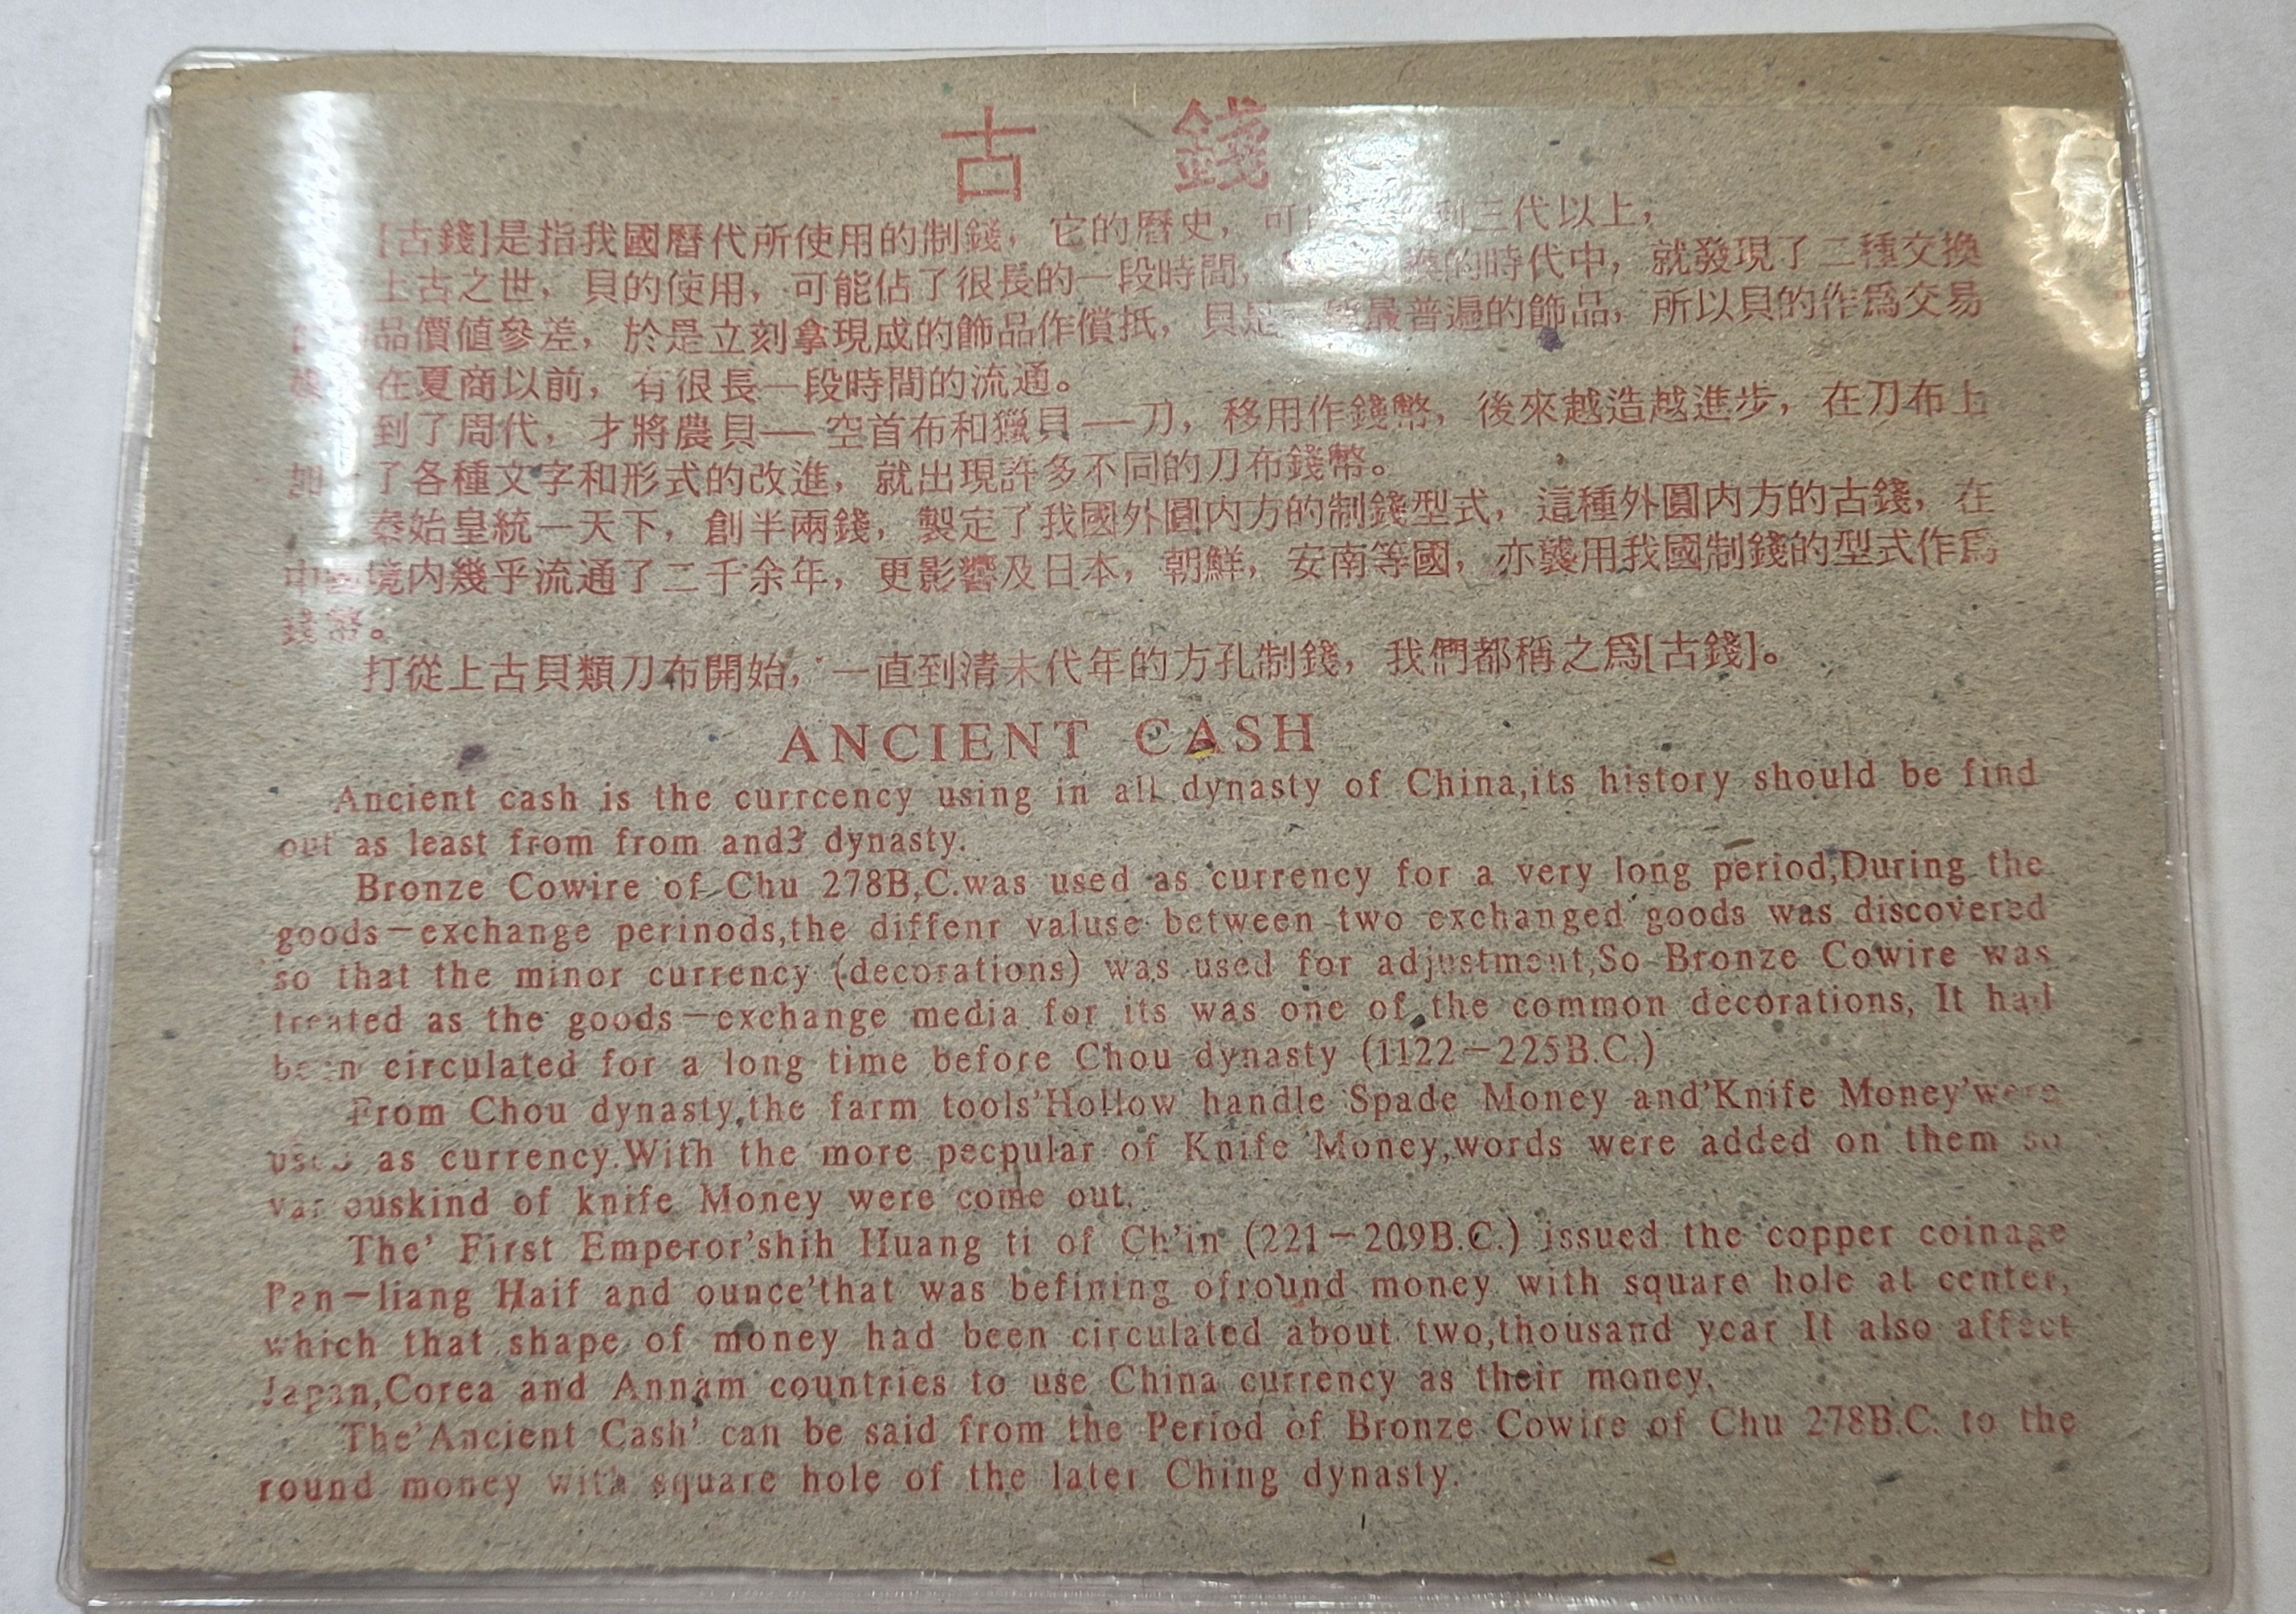 古 錢
[古錢]是指我國曆代所使用的制錢，它的曆史，可 到三代以上，
上古之世，貝的使用，可能佔了很長的一段時間， 的時代中，就發現了二種交換
品價值參差，於是立刻拿現成的飾品作償抵，貝是 最普遍的飾品，所以貝的作爲交易
在夏商以前，有很長一段時間的流通。
到了周代，才將農貝——空首布和獵貝——刀，移用作錢幣，後來越造越進步，在刀布上
加 了各種文字和形式的改進，就出現許多不同的刀布錢幣。
秦始皇統一天下，創半兩錢，製定了我國外圓内方的制錢型式，這種外圓内方的古錢，在
中國境内幾乎流通了二千余年，更影響及日本，朝鮮，安南等國，亦襲用我國制錢的型式作爲
錢幣。
打從上古貝類刀布開始，一直到清末代年的方孔制錢，我們都稱之爲[古錢]。
ANCIENT CASH
Ancient cash is the currcency using in all dynasty of China,its history should be find
out as least from from and3 dynasty.
Bronze Cowire of Chu 278B,C.was used as currency for a very long period,During the
goods－exchange perinods,the diffenr valuse between two exchanged goods was discovered
so that the minor currency (decorations) was used for adjustment,So Bronze Cowire was
treated as the goods－exchange media for its was one of the common decorations, It had
been circulated for a long time before Chou dynasty (1122－225B.C.)
From Chou dynasty,the farm tools'Hollow handle Spade Money and'Knife Money'were
used as currency.With the more pecpular of Knife Money,words were added on them so
var ouskind of knife Money were come out.
The' First Emperor'shih Huang ti of Ch'in (221－209B.C.) issued the copper coinage
Pan－liang Haif and ounce'that was befining ofround money with square hole at center,
which that shape of money had been circulated about two,thousand year It also affect
Japan,Corea and Annam countries to use China currency as their money.
The'Ancient Cash' can be said from the Period of Bronze Cowire of Chu 278B.C. to the
round money with square hole of the later Ching dynasty.